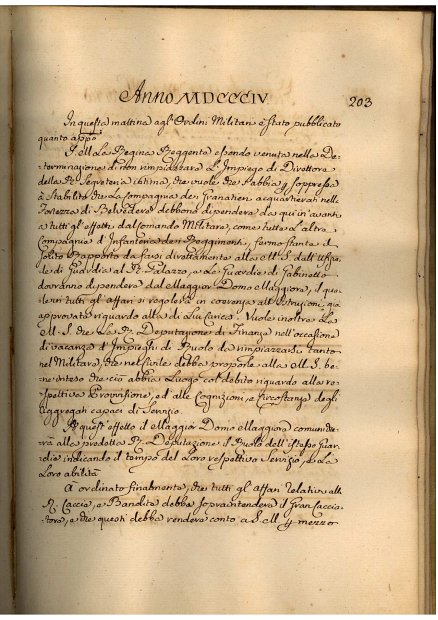 Anno MDCCCIV
203
In questa mattina agl'Ordini Militari è stato pubblicato
quanto appo
S. M. La Regina Reggente essendo venuta nella De:
terminazione di non rimpiazzare L'Impiego di Direttore
della R. Segreteria intima, che vuole che s'abbia p soppresso
à Stabilito che La Compagnia de Granatieri acquartierati nella
Fortezza di Belvedere debbono dipendere da qui in avanti
a tutti gl'effetti dal Comando Militare, come tutte L'altre
Compagnie d'Infanteria dei Reggimenti, fermo stante il
solito Rapporto da farsi direttamente alla M. S. dall'Ufizia:
le di Guardia al R. Palazzo, e Le Guardie di Gabinetto
dovranno dipendere dal Maggior Domo Maggiore, il qua:
le in tutti gl'affari si regolerà in coerenza all'Istruzioni già
approvate riguardo alla di Lui Carica. Vuole inoltre La
M. S. che La R. Deputazione di Finanze nell'occasione
di vacanza d'Impieghi di Ruolo da rimpiazzarsi tanto
nel Militare, che nel Civile debba proporre alla M. S. be:
ne inteso che ciò abbia Luogo col debito riguardo alla re:
spettiva Provvisione, ed alle Cognizioni, e Circostanze degli
Aggregati capaci di Servizio.
A quest'effetto il Maggior Domo Maggiore comuniche:
rà alla predetta R. Deputazione il Ruolo dell'istesse Guar:
die indicando il tempo del Loro respettivo Servizio, e La
Loro abilità
A ordinato finalmente, che tutti gl'affari relativi alle
R. Caccie, e Bandite debba soprintendere il Gran Caccia:
tore, e che questi debba rendere conto a S. M. p mezzo